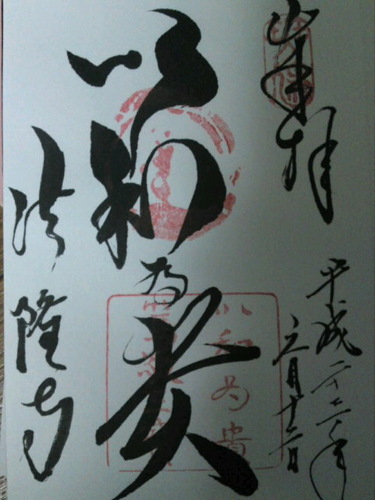 奉拝
平成二十二年
月十二日
以和為貴
法隆寺
以和為貴